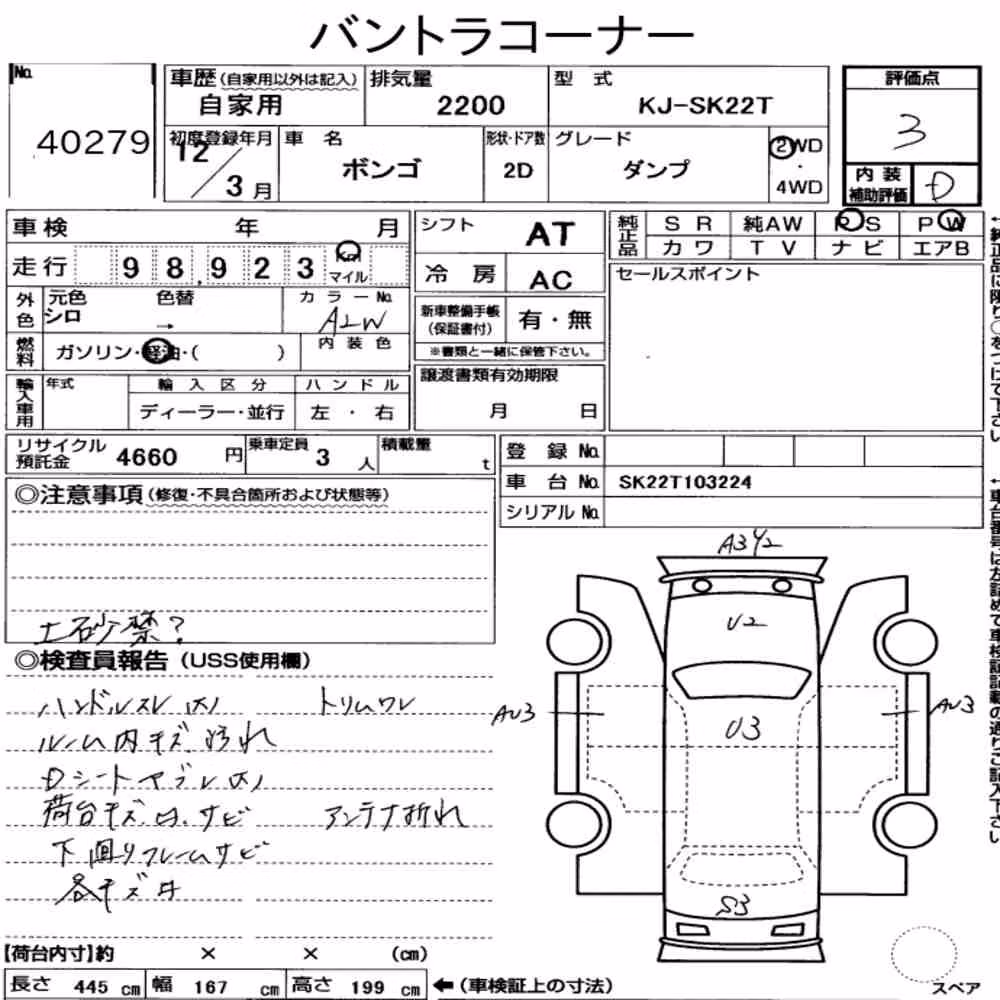 バントラコーナー
No.
40279
車歴(自家用以外は記入)
自家用
排気量
2200
型 式
KJ-SK22T
評価点
3
初度登録年月
12/3月
車 名
ボンゴ
形状・ドア数
2D
グレード
ダンプ
2WD
・
4WD
内装
補助評価
D
車検 年 月
走行 98,923 Km
マイル
外色
元色
シロ
色替
→
カラーNo.
A2W
燃料
ガソリン・軽油・( )
内装色
輸入車用
年式
輸入区分
ディーラー・並行
ハンドル
左 ・ 右
シフト
AT
冷 房
AC
新車整備手帳
(保証書付)
有・無
※書類と一緒に保管下さい。
譲渡書類有効期限
月 日
純正品
SR 純AW PS PW
カワ TV ナビ エアB
セールスポイント
←純正品に限り○をつけて下さい
リサイクル
預託金
4660 円
乗車定員
3 人
積載量
t
登 録 No.
車 台 No. SK22T103224
シリアル No.
←車台番号は左詰めで車検証記載の通りご記入下さい
◎注意事項(修復・不具合箇所および状態等)
土砂禁?
◎検査員報告(USS使用欄)
ハンドルスレ 大 トリムワレ
ルーム内キズ、汚れ
Dシートヤブレ大
荷台キズ凹、サビ アンテナ折れ
下廻りフレームサビ
各キズ凹
A3Y2
U2
AU3
U3
AU3
S3
【荷台内寸】約 × × (cm)
長さ 445 cm 幅 167 cm 高さ 199 cm ←(車検証上の寸法)
スペア